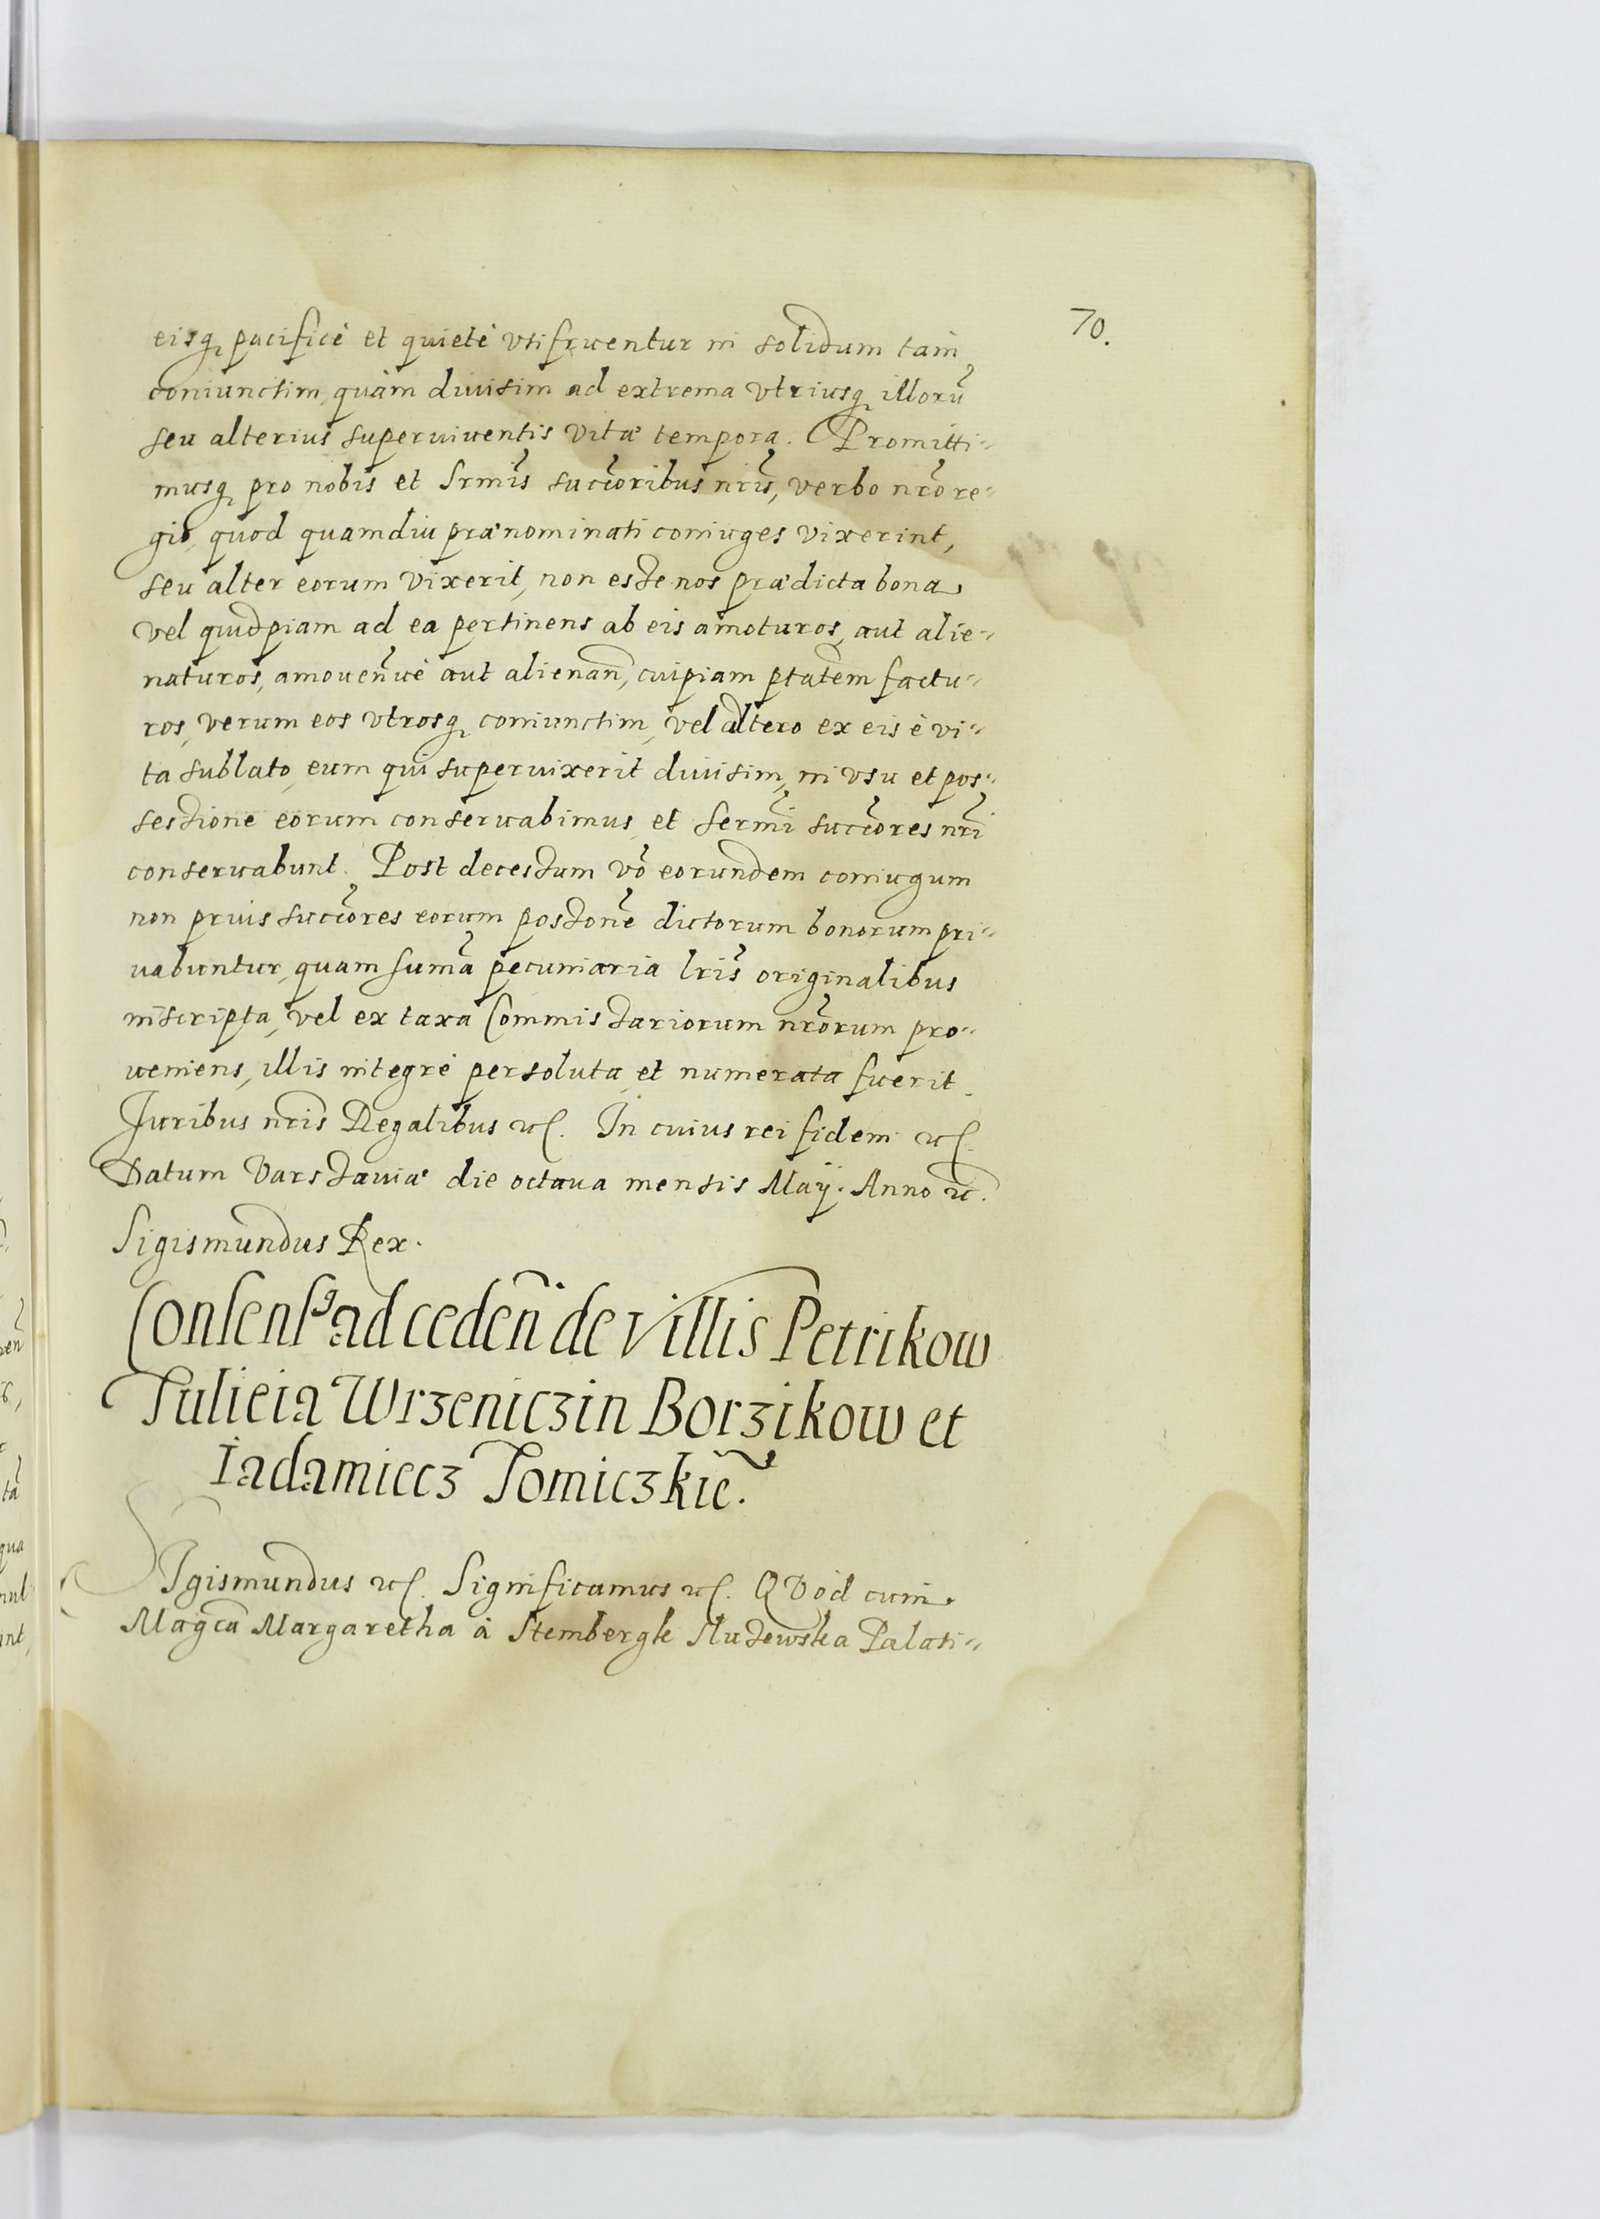 70.
eisq pacificè et quietè vtifruentur in solidum tam
coniunctim, quàm diuisim ad extrema vtriusq illorũ
seu alterius superuiuentis vitæ tempora. Promitti-
musq pro nobis et Srmis succoribus nris, verbo nro re-
gio, quod quamdiu prænominati coniuges vixerint,
seu alter eorum vixerit, non esse nos prædicta bona
vel quidpiam ad ea pertinens ab eis amoturos, aut alie-
naturos, amouen̄uè aut alienan̄, cuipiam ptatem factu-
ros, verum eos vtrosq coniunctim, vel altero ex eis è vi-
ta sublato, eum qui superuixerit diuisim, in vsu et pos-
sessione eorum conseruabimus, et Sermi succores nri
conseruabunt. Post decessum vo eorundem coniugum
non prius succores eorum possone dictorum bonorum pri-
uabuntur, quam suma pecuniaria lris originalibus
inscripta, vel ex taxa Commissariorum nrorum pro-
ueniens, illis integrè persoluta, et numerata fuerit.
Juribus nris Regalibus etc. In cuius rei fidem etc.
Datum Varssauiæ die octaua mensis Maij. Anno etc.
Sigismundus Rex.
Consensꝰ ad ceden̄ de villis Petrikow
Tulieia Wrzeniczin Borzikow et
Jadamiecz Tomiczkie.
SIgismundus etc. Significamus etc. QVod cum
Magca Margaretha à Stembergk Sluzewska Palati-